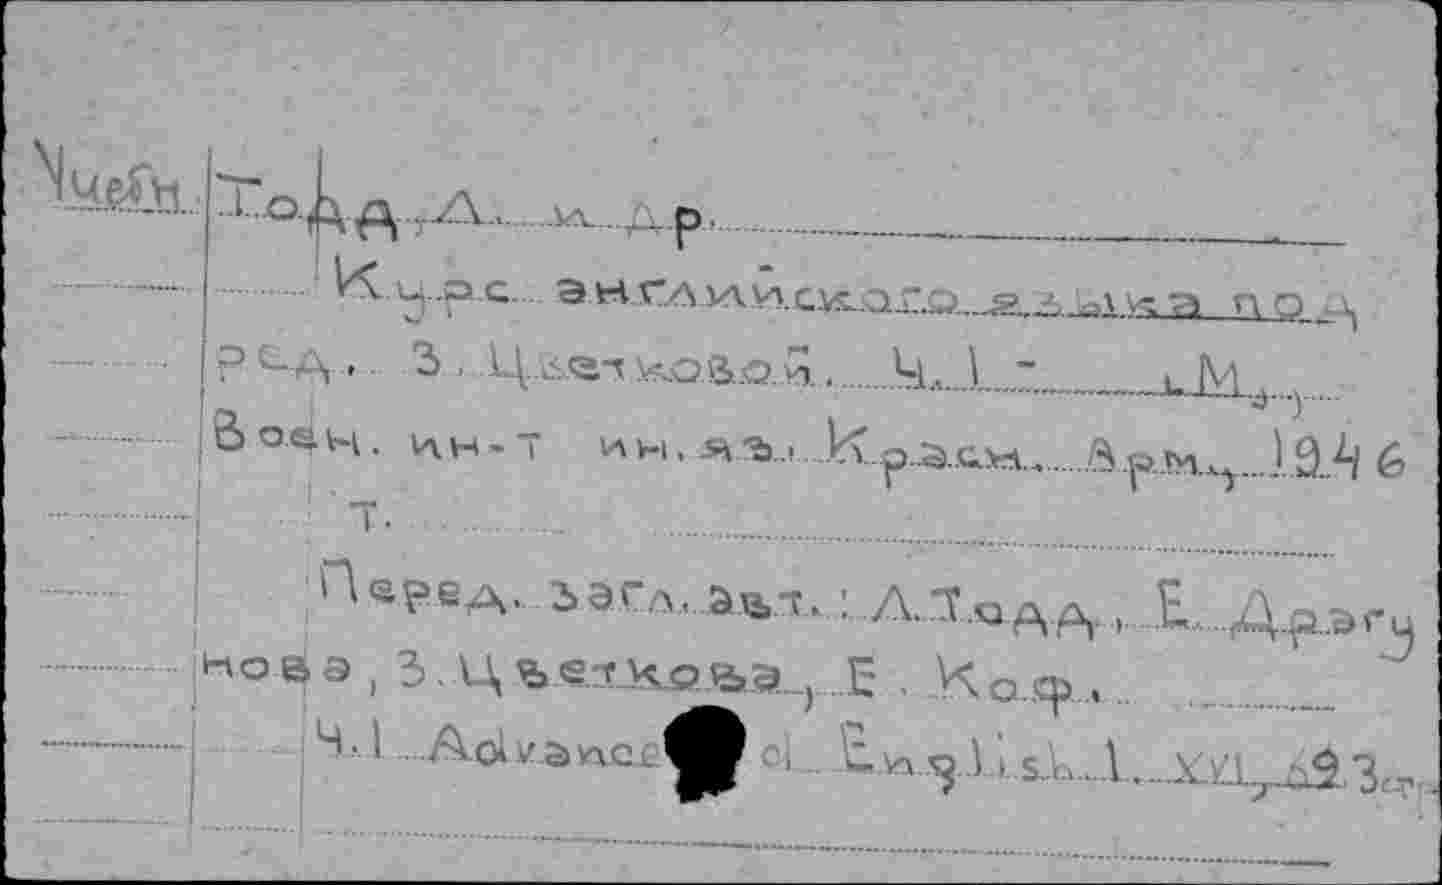 Учебн. Тодд, Л. и др.
Курс английского языка под
ред. З. Цветковой. Ч. 1 - М.,
Воен. ин-т ин. яз. Красн. Арм., 1946
т.
Перед загл. авт.: Л. Тодд, Е. Драгу
нова, З. Цветкова, Е. Коф.
Ч. 1 Advanced English 1. XVI, 693 ст.